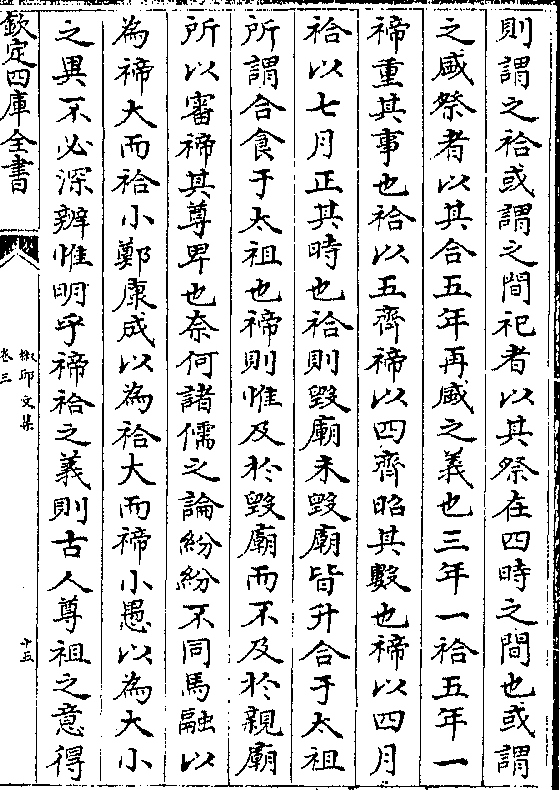 則謂之祫或謂之間祀者以其祭在四時之間也或謂
之盛祭者以其合五年再盛之義也三年一祫五年一
禘重其事也祫以五齊禘以四齊昭其數也禘以四月
祫以七月正其時也祫則毀廟未毀廟皆升合于太祖
所謂合食于太祖也禘則惟及於毀廟而不及於親廟
所以審禘其尊卑也奈何諸儒之論紛紛不同馬融以
為禘大而祫小鄭康成以為祫大而禘小愚以為大小
之異不必深辨惟明乎禘祫之義則古人尊祖之意得
欽定四庫全書
椒邱文集
卷三
十五